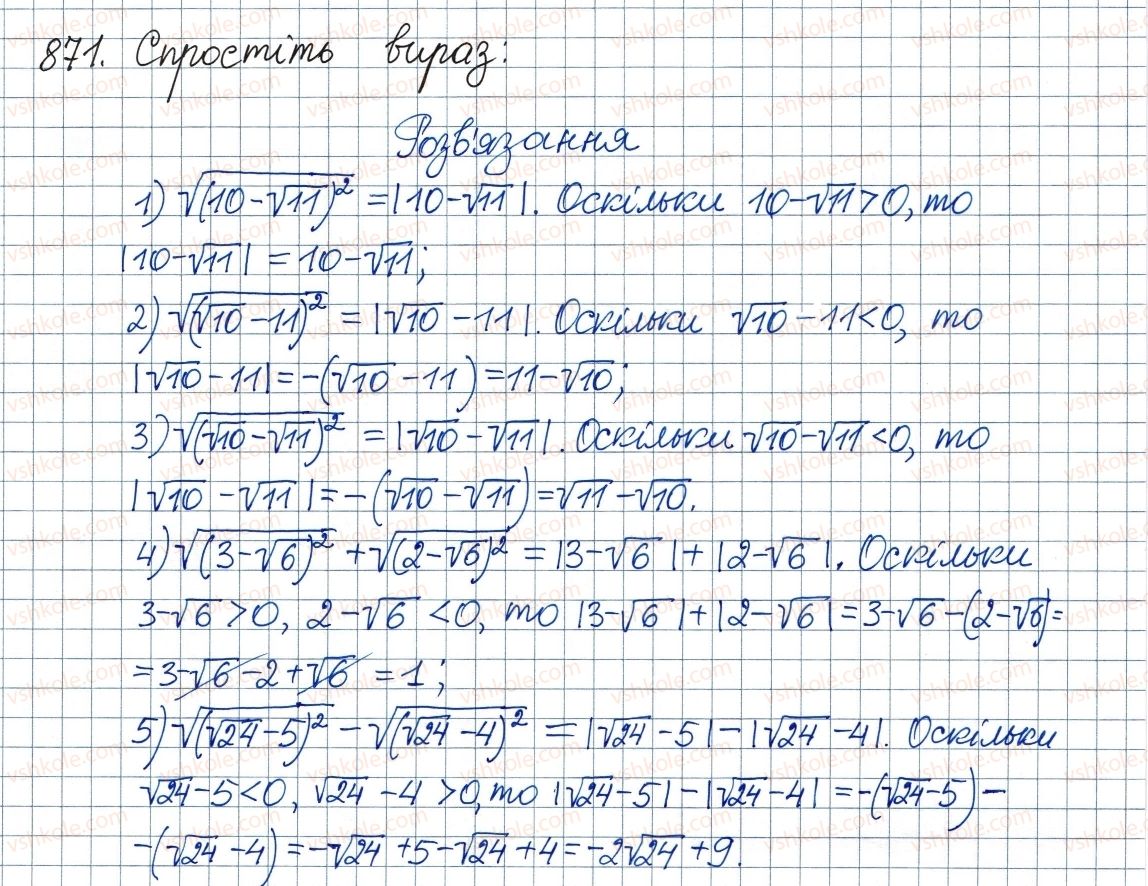 871. Спростіть вираз:
Розв'язання
1) √(10-√11)² = |10-√11|. Оскільки 10-√11>0, то
|10-√11| = 10-√11;
2) √(√10-11)² = |√10-11|. Оскільки √10-11<0, то
|√10-11|=-(√10-11)=11-√10;
3) √(√10-√11)² = |√10-√11|. Оскільки √10-√11<0, то
|√10-√11|=-(√10-√11)=√11-√10.
4) √(3-√6)² + √(2-√6)² = |3-√6|+|2-√6|. Оскільки
3-√6>0, 2-√6<0, то |3-√6|+|2-√6|=3-√6-(2-√6)=
=3-√6-2+√6 = 1;
5) √(√24-5)² - √(√24-4)² = |√24-5|-|√24-4|. Оскільки
√24-5<0, √24-4>0, то |√24-5|-|√24-4|=-(√24-5)-
-(√24-4)=-√24+5-√24+4=-2√24+9.